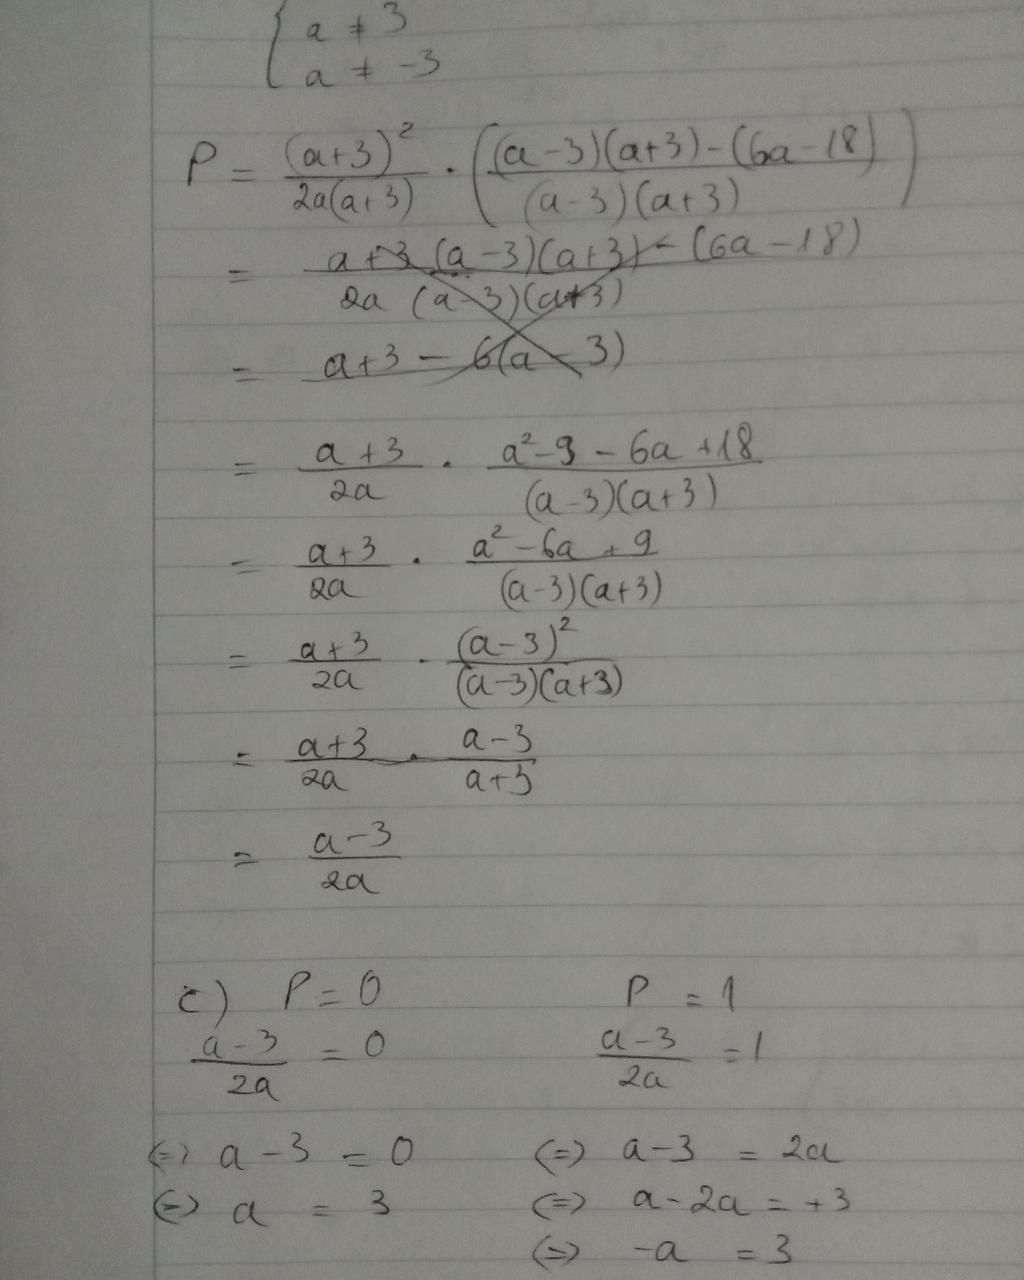 { a ≠ 3
a ≠ -3
P = (a+3)² / 2a(a+3) · ( ((a-3)(a+3) - (6a-18)) / (a-3)(a+3) )
= a+3 (a-3)(a+3) - (6a-18) / 2a (a-3)(a+3)
= a+3 - 6(a-3)
= a+3 / 2a · a²-9-6a+18 / (a-3)(a+3)
= a+3 / 2a · a²-6a+9 / (a-3)(a+3)
= a+3 / 2a · (a-3)² / (a-3)(a+3)
= a+3 / 2a · a-3 / a+3
= a-3 / 2a
c) P = 0 P = 1
a-3 / 2a = 0 a-3 / 2a = 1
(=) a-3 = 0 (=) a-3 = 2a
(=) a = 3 (=) a-2a = +3
(=) -a = 3